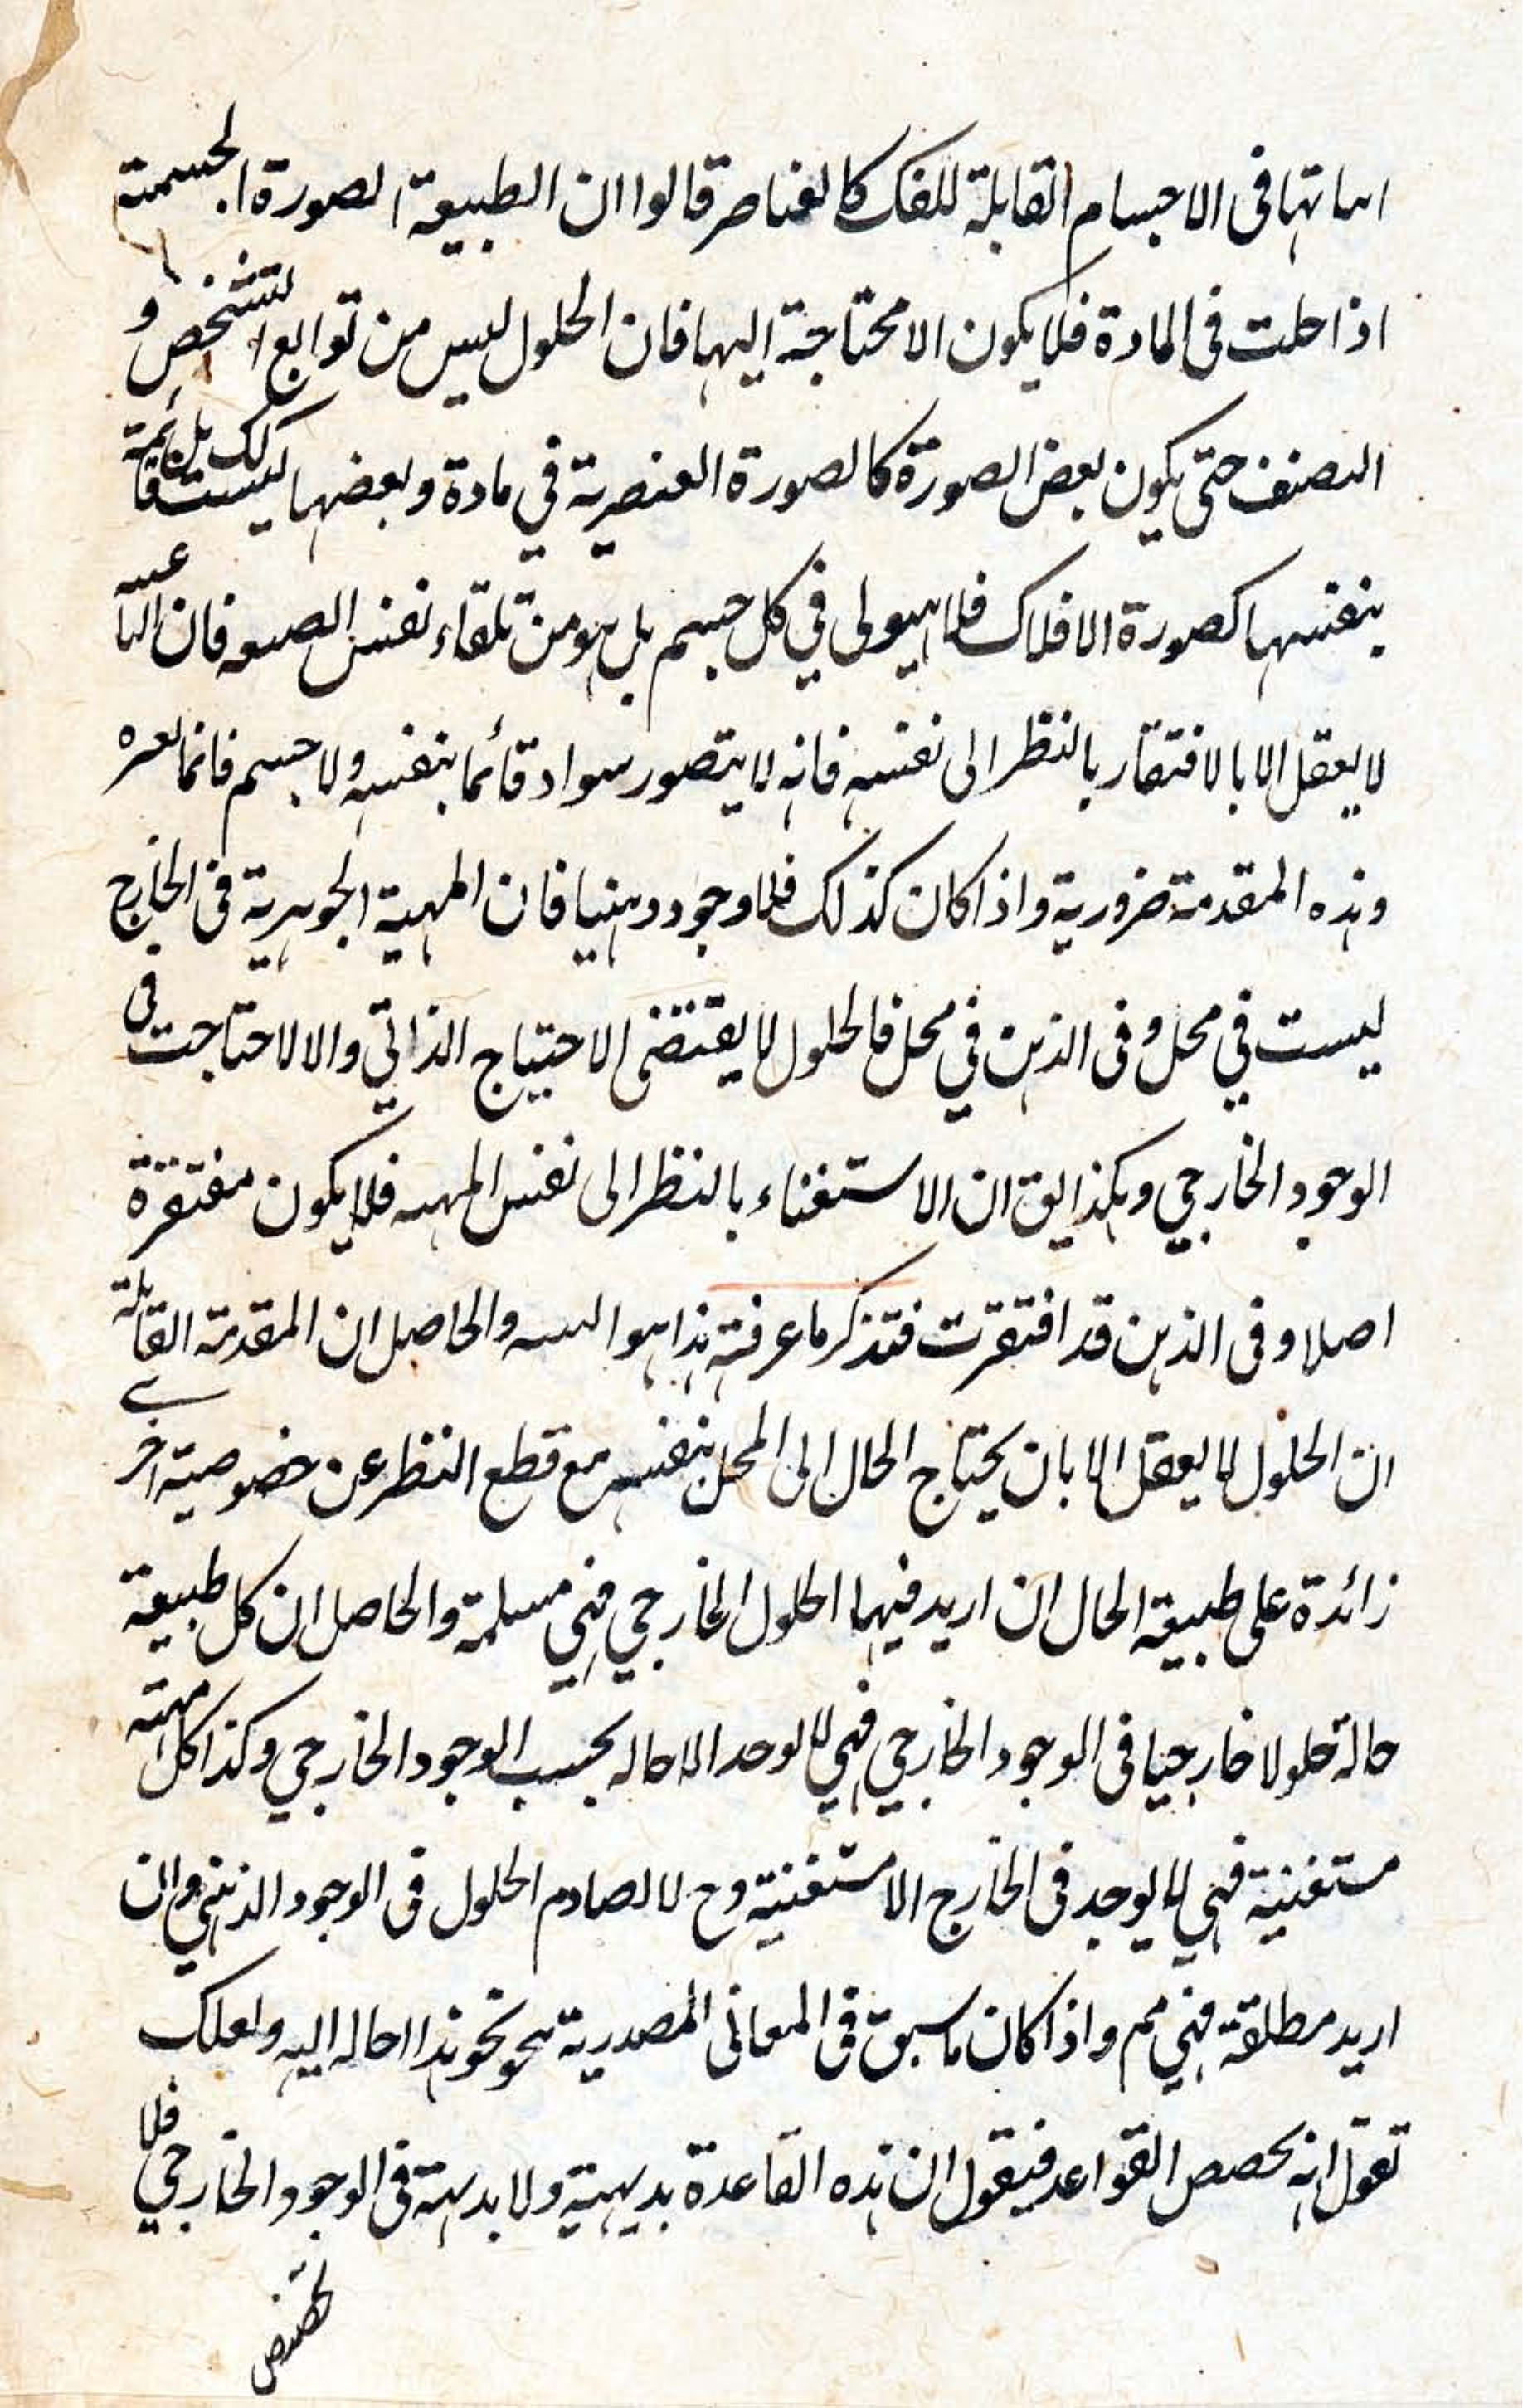 اساتها فى الاجسام القابلة للفك كالعناصر قالوا ان الطبيعة الصورة الجسمية
اذا حلت فى المادة فلا يكون الا محتاجة اليها فان الحلول ليس من توابع التشخص و
التصنف حتى يكون بعض الصورة كالصورة العنصرية في مادة وبعضها ليست كك بل قائمة
بنفسها كصورة الافلاك فلا هيولى في كل جسم بل هو من تلقاء نفس فان
لا يعقل الا بالافتقار بالنظر الى نفسه فانه لا يتصور سواد قائما بنفسه ولا جسم قائما
وهذه المقدمة ضرورية واذا كان كذلك فلا وجود ذهنيا فان المهية الجوهرية فى الخارج
ليست في محل وفى الذهن في محل فالحلول لا يقتضى الاحتياج الذاتي والا لاحتاجت فى
الوجود الخارجي وهكذا يق ان الاستغناء بالنظر الى نفس المهيه فلا يكون مفتقرة
اصلا وفى الذهن قد افتقرت فتذكر ما عرفته هذا هو والحاصل ان المقدمة القائلة
ان الحلول لا يعقل الا بان يحتاج الحال الى المحل بنفسه مع قطع النظر عن خصوصية اخرى
زائدة على طبيعة الحال ان اريد فيها الحلول الخارجي فهي مسلمة والحاصل ان كل طبيعة
حالة حلولا خارجيا فى الوجود الخارجي فهي لا يوجد الا حاله بحسب الوجود الخارجي وكذا كل مهية
مستغنية فهي لا يوجد فى الخارج الا مستغنية وح لا تصادم الحلول فى الوجود الذهني وان
اريد مطلقة فهي مم واذا كان ما سبق فى المعانى المصدرية نحو هذا احاله اليه ولعلك
تقول انه يخصص القواعد فيقول ان هذه القاعدة بديهية ولا بديهة فى الوجود الخارجي فلا
تخصيص